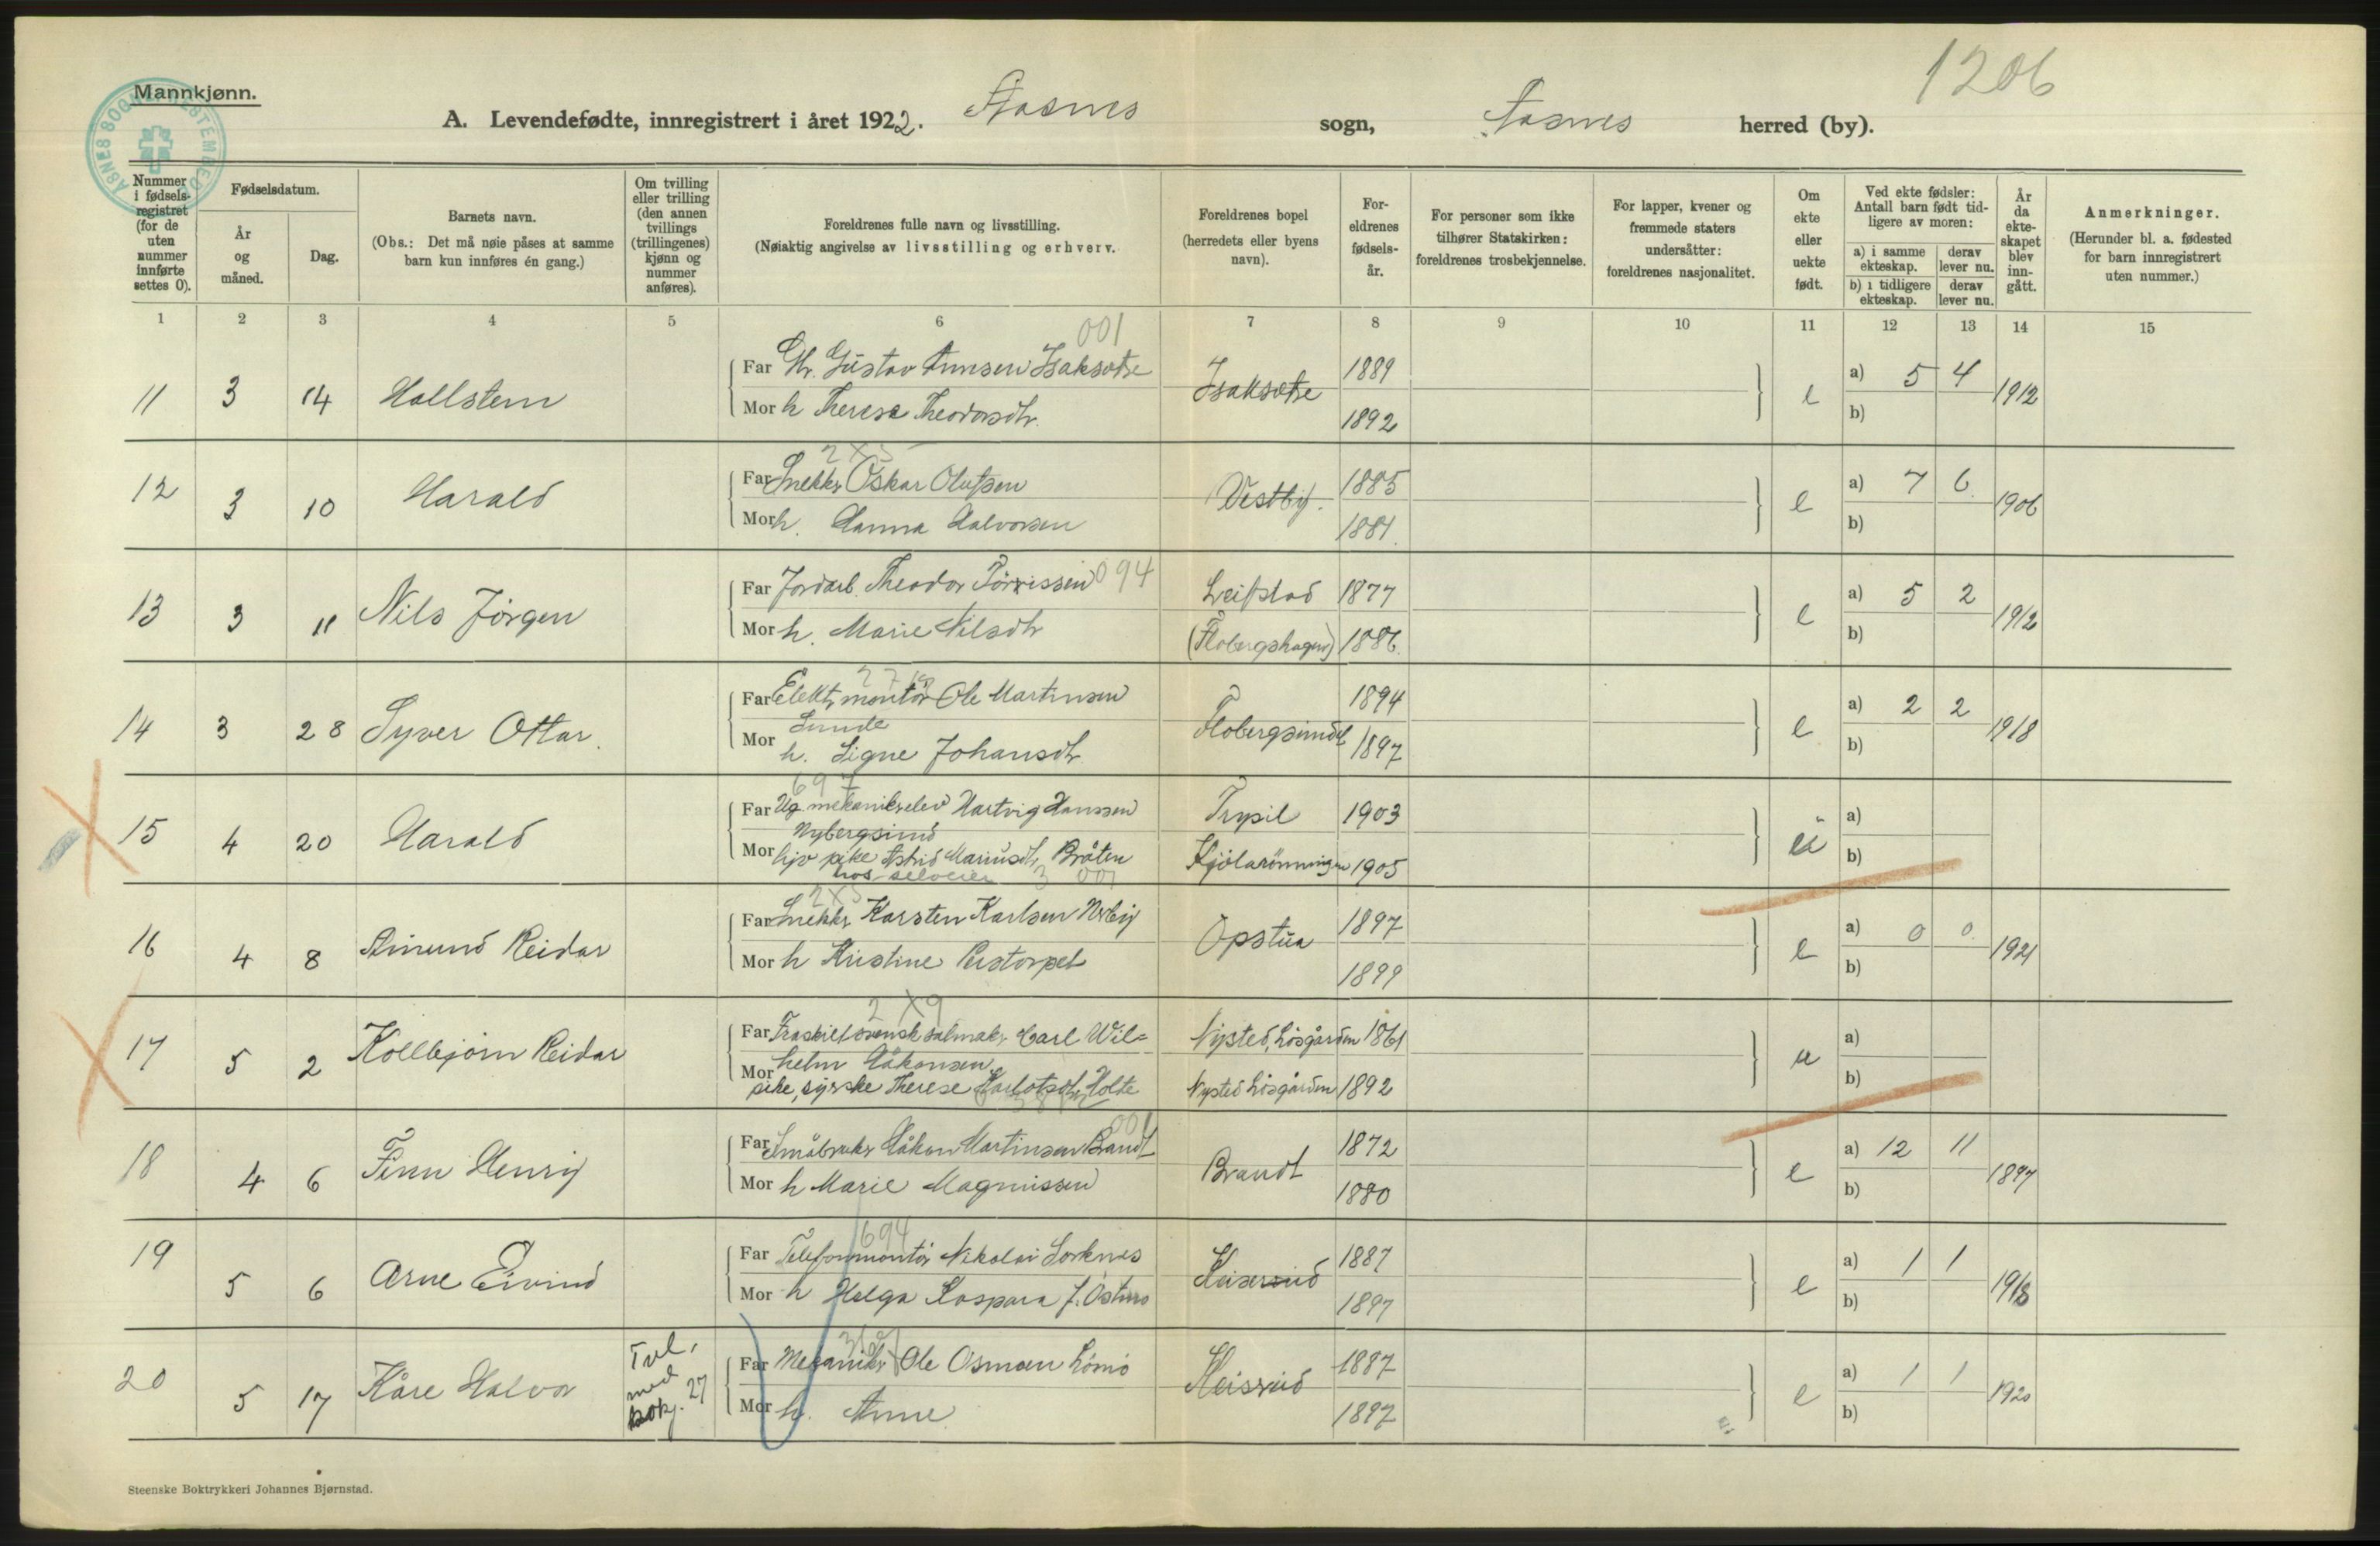 1206
Mannkjønn.
A. Levendefødte, innregistrert i året 1922. Aasnes sogn, Aasnes herred (by).
Nummer i fødselsregistret (for de uten nummer innførte settes 0).
Fødselsdatum.
År og måned.
Dag.
Barnets navn.
(Obs.: Det må nøie påses at samme barn kun innføres én gang.)
Om tvilling eller trilling (den annen tvillings (trillingenes) kjønn og nummer anføres).
Foreldrenes fulle navn og livsstilling.
(Nøiaktig angivelse av livsstilling og erhverv.
Foreldrenes bopel (herredets eller byens navn).
Foreldrenes fødselsår.
For personer som ikke tilhører Statskirken: foreldrenes trosbekjennelse.
For lapper, kvener og fremmede staters undersåtter: foreldrenes nasjonalitet.
Om ekte eller uekte født.
Ved ekte fødsler: Antall barn født tidligere av moren:
a) i samme ekteskap.
derav lever nu.
b) i tidligere ekteskap.
derav lever nu.
År da ekteskapet blev inngått.
Anmerkninger.
(Herunder bl. a. fødested for barn innregistrert uten nummer.)
1 2 3 4 5 6 7 8 9 10 11 12 13 14 15
001
11 3 14 Hallstein Far Gustav Amsen Isaksætre Isaksætre 1889 e a) 5 4 1912
Mor h Therese Theodorsdtr. 1892 b)
2X5
12 3 10 Harald Far Snekkr Oskar Olufsen Vestby. 1885 e a) 7 6 1906
Mor h. Hanna Halvorsen 1881. b)
094
13 3 11 Nils Jörgen Far Jordarb. Theodor Törrissen Leifstad 1877 e a) 5 2 1912
Mor h. Marie Nilsdtr (Flobergshagen) 1886. b)
14 3 28 Syver Ottar. Far Elektr montör Ole Martinsen 1894 e a) 2 2 1918
Sunde Flobergsund
Mor h. Signe Johansdtr. 1897 b)
697
15 4 20 Harald Far Ug. mekanikerelev Hartvig Hanssen Trysil 1903 u a)
Nybergsund
Mor hjv pike Astrid Mariusdtr. Bråten Kjölarönningen 1905 b)
hos selveier 3 001
2X5
16 4 8 Amund Reidar Far Snekkr Karsten Karlsen Nerby Opstua 1897 e a) 0 0 1921
Mor h Kristine Perstorpet 1899 b)
2X9
17 5 2 Kollbjörn Reidar Far Fraskilt svensk salmakr. Carl Wil= Nysted, Lösgården 1861 u a)
helm Håkansen
Mor pike, syerske Therese Karlotsdtr. Holte Nysted Lösgården 1892 b)
001
18 4 6 Finn Henry Far Småbruker Håkon Martinsen Brandt Brandt 1872 e a) 12 11 1897
Mor h Marie Magnussen 1880 b)
694
19 5 6 Arne Eivind Far Telefonmontör Nikolai Sorknes 1887 e a) 1 1 1918
Mor h Helga Kaspara J. Östmo 1897 b)
20 5 17 Kåre Halvor Tvl. med pokj. 27 Far Mekaniker Ole Osmoen Lömo 1887 e a) 1 1 1920
Mor h. Anne 1897 b)
Steenske Boktrykkeri Johannes Bjørnstad.